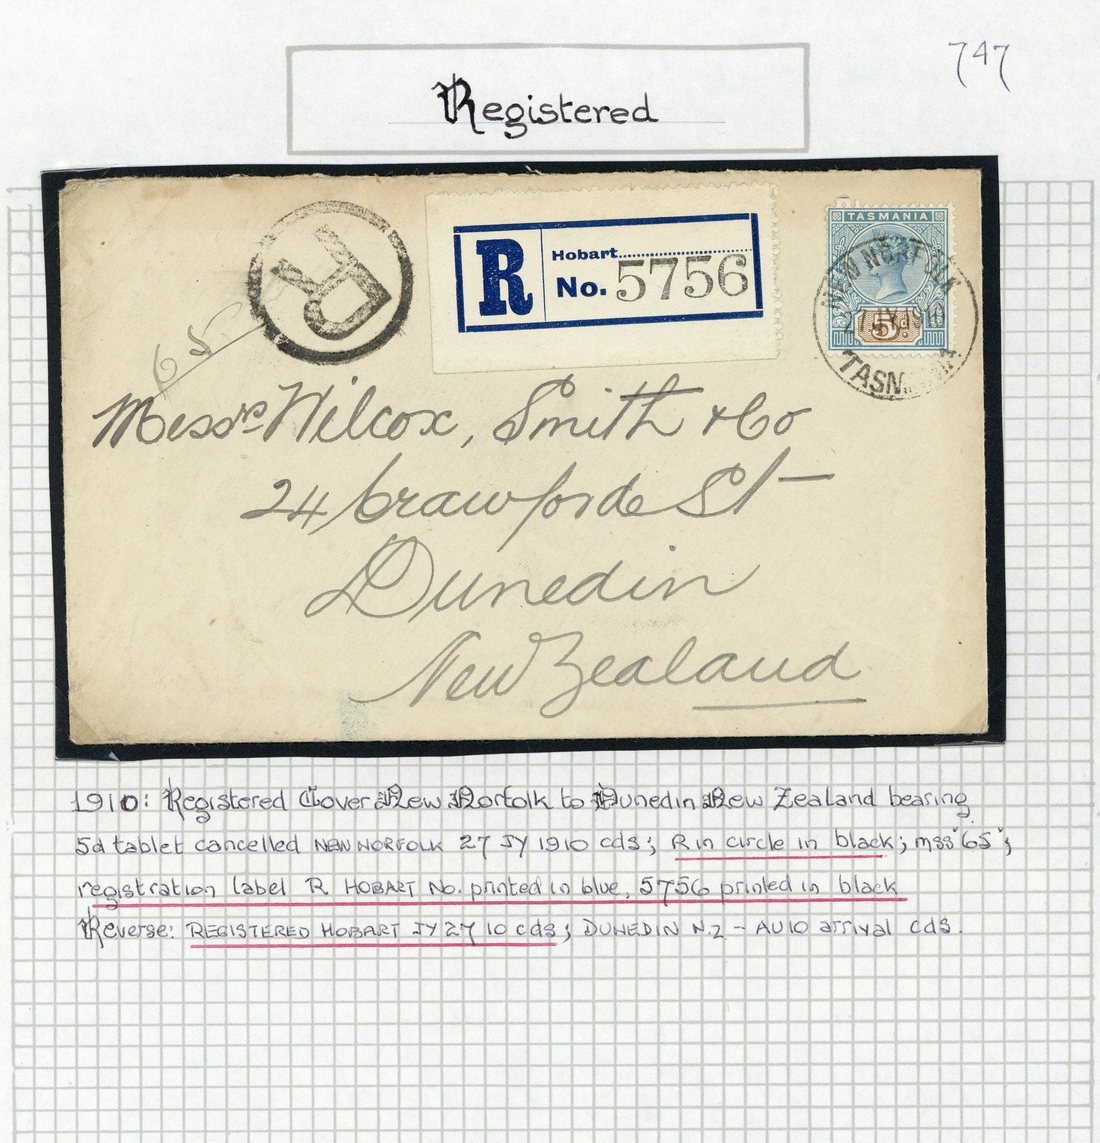 747
Registered
TASMANIA
NEW NORFOLK
5d
TASMANIA
R
65
R
Hobart
No. 5756
Messrs Wilcox, Smith & Co
24 Crawforde St
Dunedin
New Zealand
1910: Registered Cover New Norfolk to Dunedin New Zealand bearing
5d tablet cancelled NEW NORFOLK 27 JY 1910 cds; R in circle in black; mss "65";
registration label R HOBART No. printed in blue, 5756 printed in black
Reverse: REGISTERED HOBART JY 27 10 cds; DUNEDIN N.Z - AU10 arrival cds.